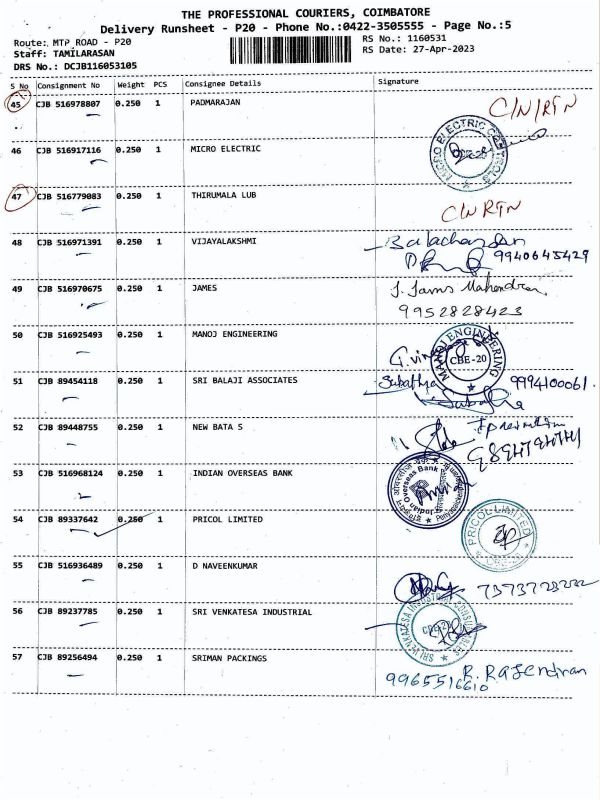 THE PROFESSIONAL COURIERS, COIMBATORE
Delivery Runsheet - P20 - Phone No.:0422-3505555 - Page No.:5
Route: MTP ROAD - P20 RS No.: 1160531
Staff: TAMILARASAN RS Date: 27-Apr-2023
DRS No.: DCJB116053105
S No Consignment No Weight PCS Consignee Details Signature
45 CJB 516978807 0.250 1 PADMARAJAN C/N/RTN
46 CJB 516917116 0.250 1 MICRO ELECTRIC
47 CJB 516779083 0.250 1 THIRUMALA LUB C/N RTN
48 CJB 516971391 0.250 1 VIJAYALAKSHMI Balachandran
9940645429
49 CJB 516970675 0.250 1 JAMES J. James Mahendran
9952828423
50 CJB 516925493 0.250 1 MANOJ ENGINEERING
MANOJ ENGINEERING CBE-20
51 CJB 89454118 0.250 1 SRI BALAJI ASSOCIATES Subathra 9994100061.
Subathra
52 CJB 89448755 0.250 1 NEW BATA S
53 CJB 516968124 0.250 1 INDIAN OVERSEAS BANK
Indian Overseas Bank
54 CJB 89337642 0.250 1 PRICOL LIMITED
PRICOL LIMITED
55 CJB 516936489 0.250 1 D NAVEENKUMAR
56 CJB 89237785 0.250 1 SRI VENKATESA INDUSTRIAL
SRI VENKATESA INDUSTRIAL CONSUMABLES
57 CJB 89256494 0.250 1 SRIMAN PACKINGS R. Rajendran
9965516610